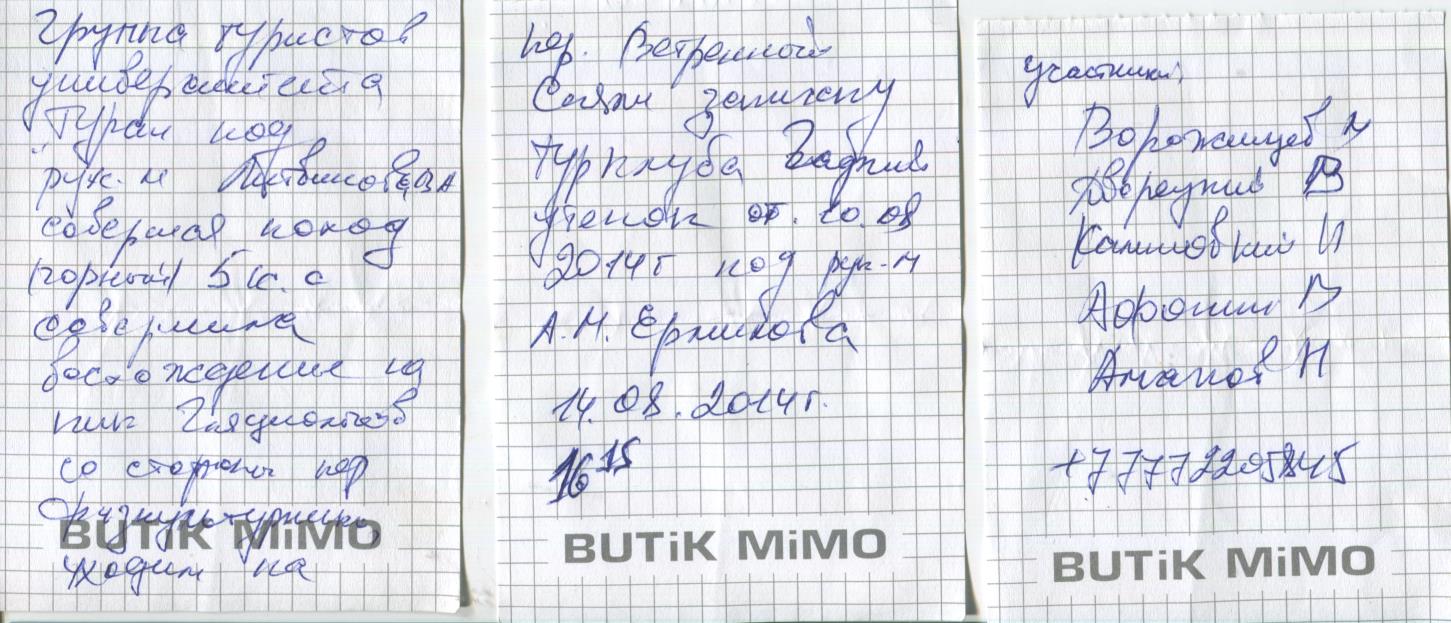 Группа туристов
университета
Туран под
рук-м Литвинова
совершая поход
(горный) 5 к. с
совершила
восхождение на
пик Гляциологов
со стороны пер
Физкультурник,
уходим на
BUTiK MiMO
пер. Ветренный
Сняли записку
Турклуба Гадкий
утенок от. 10.08
2014г под рук-м
А.Н. Ерникова
14.08.2014г.
16 15
BUTiK MiMO
участники:
Ворожищев
Дворецкий В
И
В
Аманов Н
BUTiK MiMO